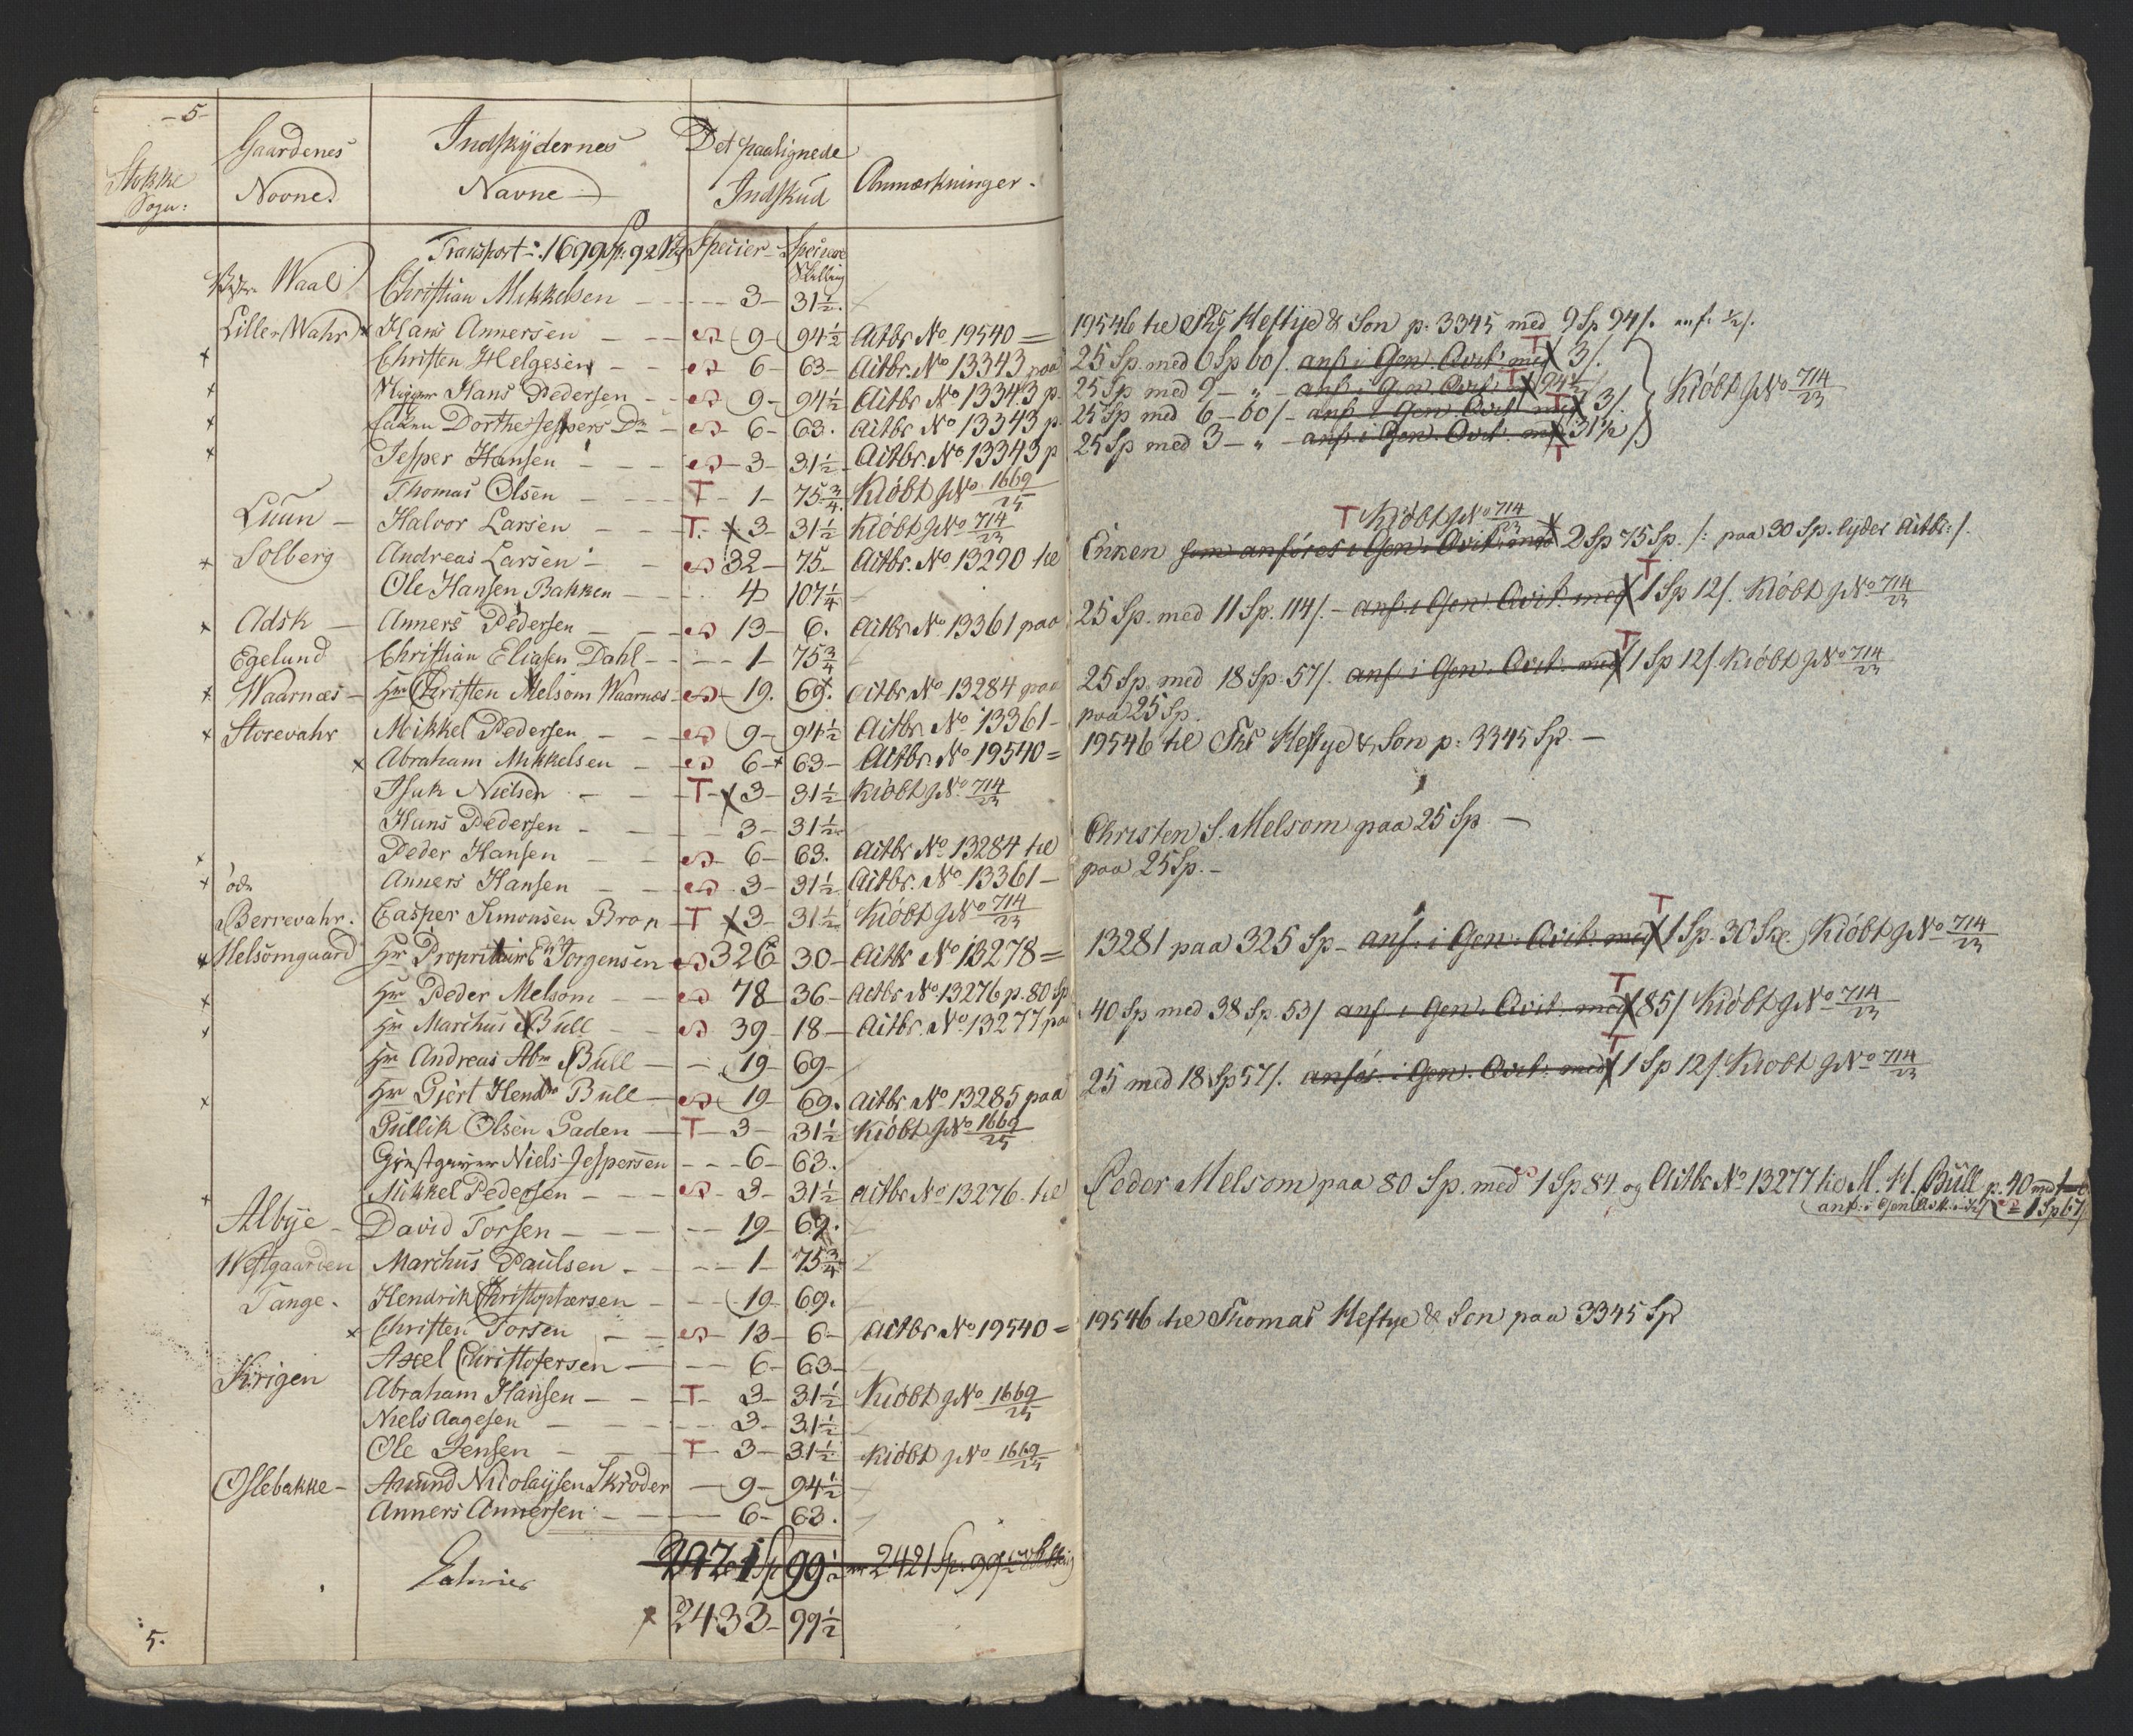 -5-
Stokke Sogn: Gaardenes Navne Indskydernes Navne Det paalignede Indskud Anmærkninger.
Transport: 1699 Sp. 92 Specier Species Skilling
Waal Christian Mikkelsen 3 31½
Lille Wahr Hans Annersen 9 94½ Actbr No 19540 = 19546 til Ths Heftye & Søn p. 3345 med 9 Sp 94/. anf. ½/.
Christen Helgesen 6 63 Actbr. No 13343 paa 25 Sp. med 6 Sp 60/. anf. i Gen. Qvit. med 3/.
Hans Pedersen 9 94½ Actbr No 13343 p. 25 Sp med 9 - " - anf. i Gen. Qvit. 94½/.
Dorthe Jespers Dr 6 63. Actbr No 13343 p. 25 Sp med 6 - 60/ - anf. i Gen. Qvit med 3/. Kiöbt J No 714/23
Jesper Hansen 3 31½ Actbr. No 13343 p 25 Sp med 3 - " - anf. i Gen. Qvit. med 31½/.
Thomas Olsen T 1 75¾ Kiöbt J No 1669/25
Luun Halvor Larsen T. x 3 31½ Kiöbt J No 714/23
T Kiöbt J No 714/23
Solberg Andreas Larsen 32 75 Actbr. No 13290 til Enken som anføres i Gen. Qvit. med 2 Sp 75 Sp. /: paa 30 Sp. lyder Actbr: /.
Ole Hansen Bakken 4 107¼
Adsk Anners Pedersen 13 6. Actbr No 13361 paa 25 Sp. med 11 Sp. 114/. anf. i Gen. Qvit. med 1 Sp 12/. Kiöbt J No 714/23
Egelund Christian Eliasen Dahl 1 75¾
Waarnæs Hr Christen Melsom Waarnæs 19. 69. Actbr No 13284 paa 25 Sp. med 18 Sp. 57/. anf. i Gen. Qvit. med 1 Sp 12/. Kiöbt J No 714/23
Storevahr Mikkel Pedersen 9 94½ Actbr. No 13361 - paa 25 Sp.
Abraham Mikkelsen 6 63 Actbr. No 19540 = 19546 til Ths Heftye & Søn p: 3345 Sp. -
Isak Nielsen T x 3 31½ Kiöbt J No 714/23
Hans Pedersen 3 31½
Peder Hansen 6 63. Actbr No 13284 til Christen S. Melsom paa 25 Sp -
Anners Hansen 3 31½ Actbr. No 13361 - paa 25 Sp. -
Berrevahr. Casper Simonsen T x 3 31½ Kiöbt J No 714/23
Melsomgaard Hr Jørgensen 326 30 Actbr No 13278 = 13281 paa 325 Sp - anf. i Gen. Qvit. med 1 Sp. 30 Sk. Kiöbt J No 714/23
Hr Peder Melsom 78 36 Actbr No 13276 p. 80 Sp
Hr Marchus Bull 39 18 Actbr. No 13277 paa 40 Sp med 38 Sp. 53/ anf. i Gen. Qvit. med 85/ Kiöbt J No 714/23
Hr Andreas Abm Bull 19 69
Hr Giert Hendr Bull 19 69. Actbr No 13285 paa 25 med 18 Sp 57/. i Gen. Qvit. med 1 Sp 12/. Kiöbt J No 714/23
Gullik Olsen Gaden T 3 31½ Kiöbt J No 1669/25
Niels Jespersen 6 63.
Mikkel Pedersen 3 31½ Actbr No 13276 til Peder Melsom paa 80 Sp. med 1 Sp 84 og Actbr No 13277 til M. H. Bull p. 40 med
= 1 Sp 67/.
Albye David Torsen 19 69.
Westgaarden Marchus Paulsen 1 75¾
Tange. Hendrik Christophersen 19 69.
Christen Torsen 13 6 Actbr No 19540 = 19546 til Thomas Heftye & Søn paa 3345 Sp
Axel Christofersen 6 63
Krigen Abraham Hansen T 3 31½ Kiöbt J No 1669/25
Niels Aagesen 3 31½
Ole Jensen T 3 31½ Kiöbt J No 1669/25
Oslebakke Amund Nicolaysen Skröder 9 94½
Anners Annersen 6 63.
99½ 2421 Sp. 99½
2433 99½
5.